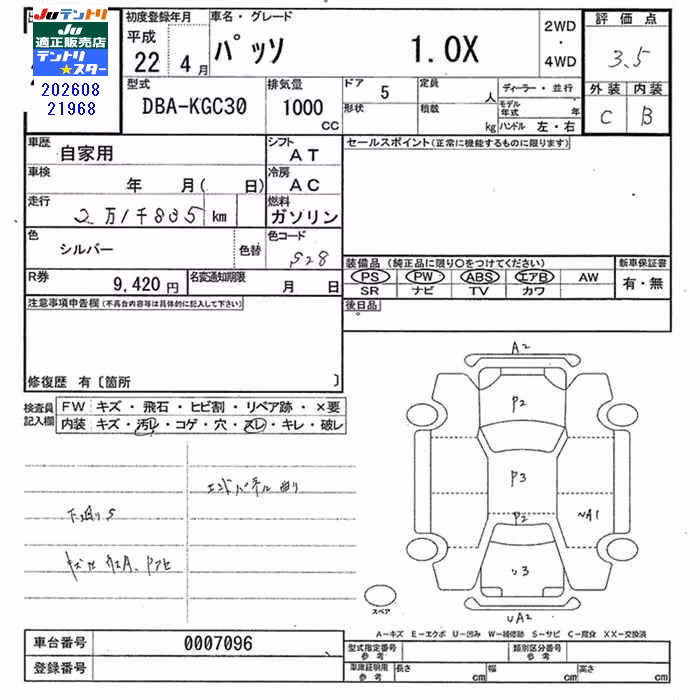 Juテントリ
Ju
適正販売店
テントリ
★スター
202608
21968
初度登録年月
平成
22 4月
車名・グレード
パッソ 1.0X
2WD
・
4WD
評価点
3.5
外装 内装
C B
型式
DBA-KGC30
排気量
1000
CC
ドア 5
形状
定員 人
積載 kg
ディーラー・並行
モデル年式 年
ハンドル 左・右
車歴 自家用
シフト AT
車検 年 月( 日)
冷房 AC
走行 2万1千835 km
燃料 ガソリン
色 シルバー 色替
色コード S28
R券 9,420円
名変通知期限 月 日
セールスポイント(正常に機能するものに限ります)
装備品(純正品に限り○をつけてください)
PS PW ABS エアB AW
SR ナビ TV カワ
新車保証書
有・無
後日品
注意事項申告欄(不具合内容等は具体的に記入して下さい)
修復歴 有〔箇所 〕
検査員記入欄
FW キズ・飛石・ヒビ割・リペア跡・×要
内装 キズ・汚レ・コゲ・穴・スレ・キレ・破レ
エンドパネル曲り
下廻りS
A2
P2
P3
P2
A1
U3
UA2
スペア
A-キズ E-エクボ U-凹み W-補修跡 S-サビ C-腐食 XX-交換済
車台番号 0007096
登録番号
型式指定番号 参考
類別区分番号 参考
車庫証明用 参考
長さ cm 幅 cm 高さ cm